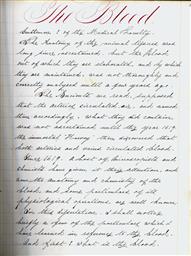 The Blood
Gentlemen of the Medical Faculty
The Anatomy of the animal ligaments was
long since, ascertained. but the blood,
out of which they are elaborated, and by which
they are maintained, was not thoroughly and
correctly analysed until a few years ago.
The Ancients we read, supposed
that the arteries circulated air, and named
them accordingly. What they did contain,
was not ascertained until the year 1619
the immortal Harvey then discovered that
both arteries and veins circulated blood.
Since 1619. a host of
chemists have given it their attention, and
now the anatomy and chemistry of the
blood, and some particulars of its
physiological operations are well known.
In this dissertation, I shall notice
briefly a few of the particulars which I
have learned in reference to the blood.
And first, What is the blood.